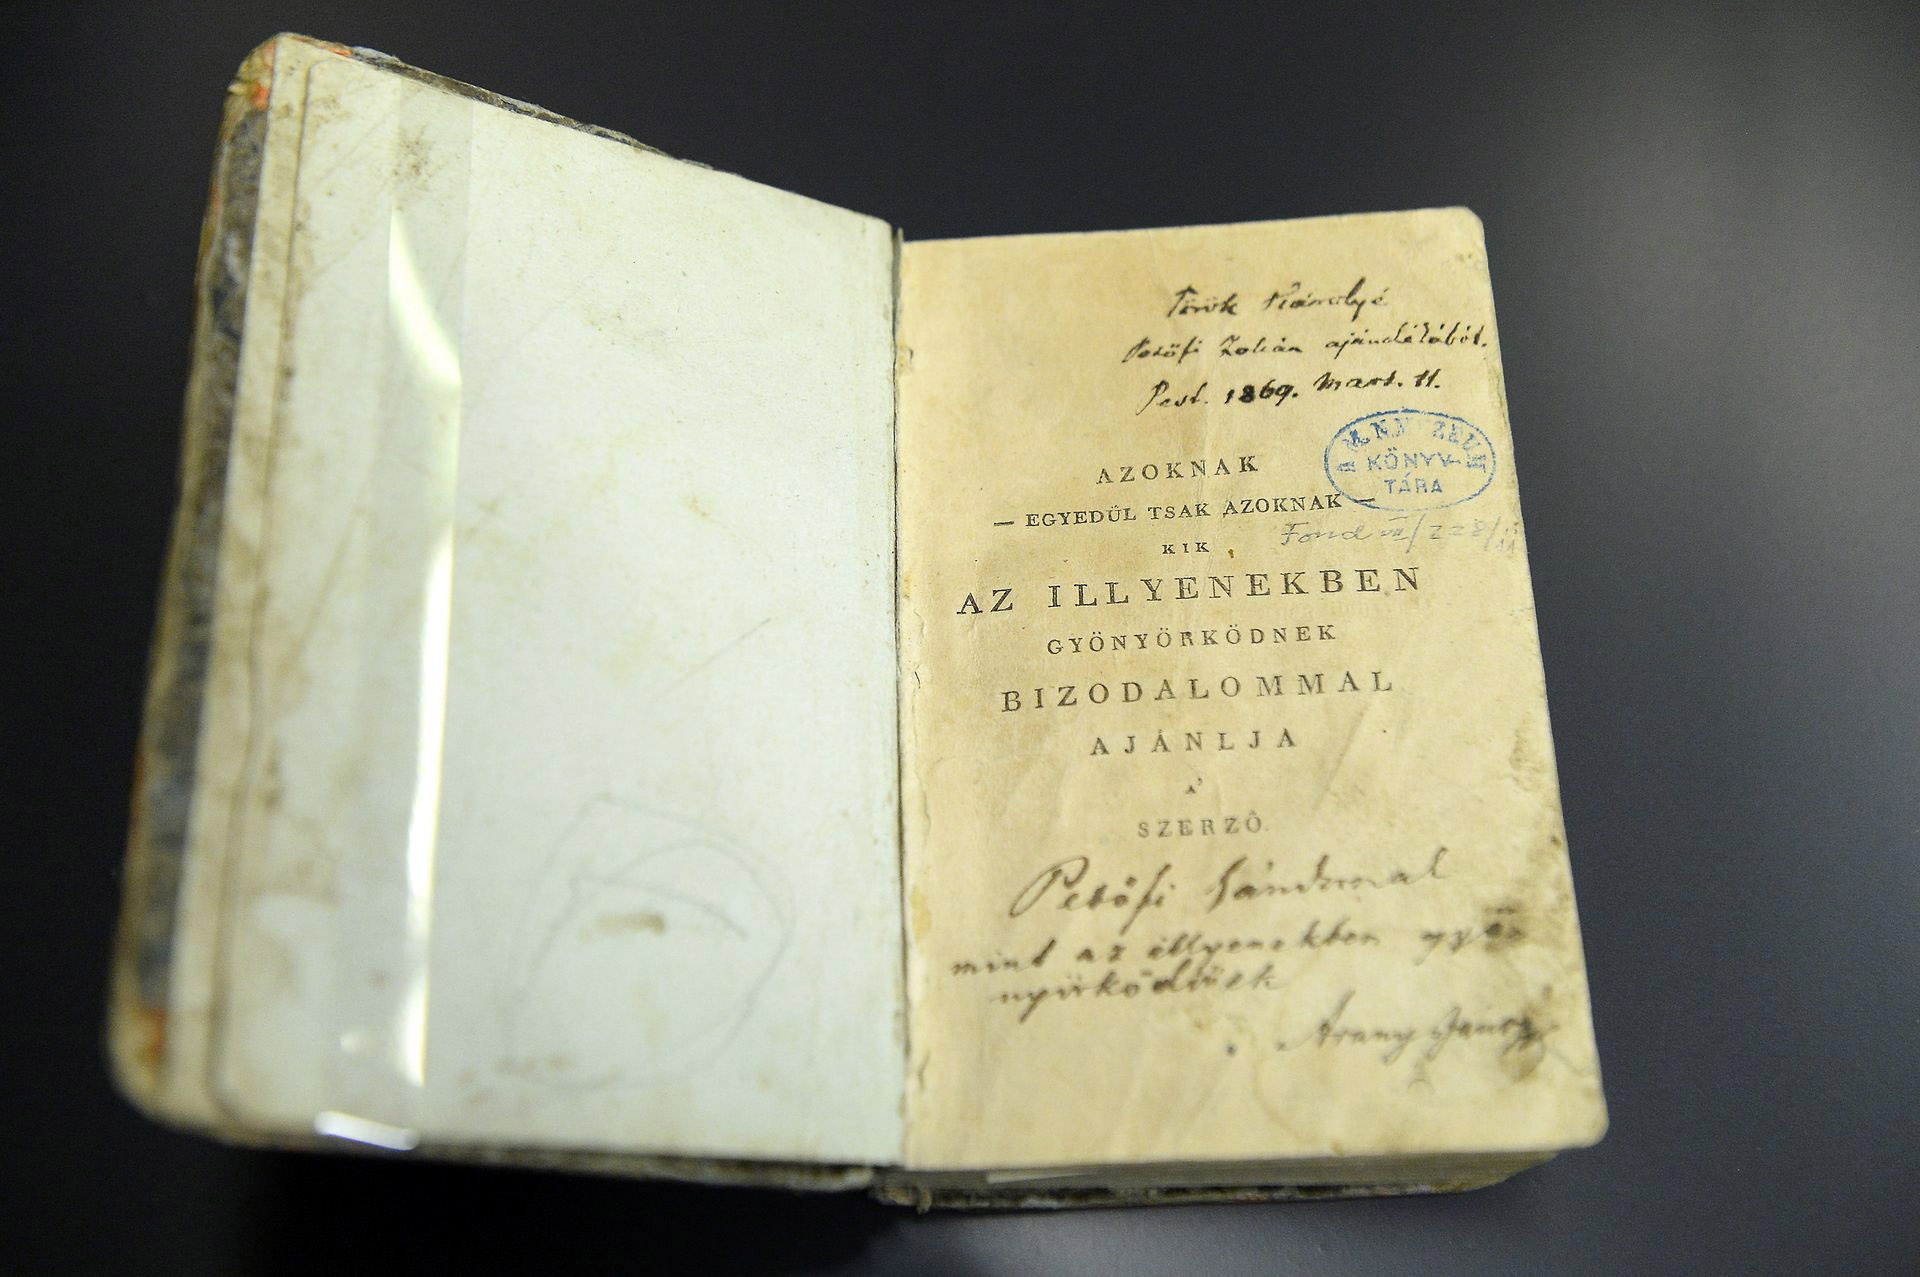 Török Károlyé
Petőfi Zoltán ajándékából.
Pest. 1869. Mart. 11.
A M. N. MUZEUM
KÖNYV-
TÁRA
AZOKNAK
— EGYEDÜL TSAK AZOKNAK —
Fond VII/228/
KIK
AZ ILLYENEKBEN
GYÖNYÖRKÖDNEK
BIZODALOMMAL
AJÁNLJA
A'
SZERZÔ.
Petőfi Sándornak
mint az illyenekben gyön
nyörködőnek
Arany János